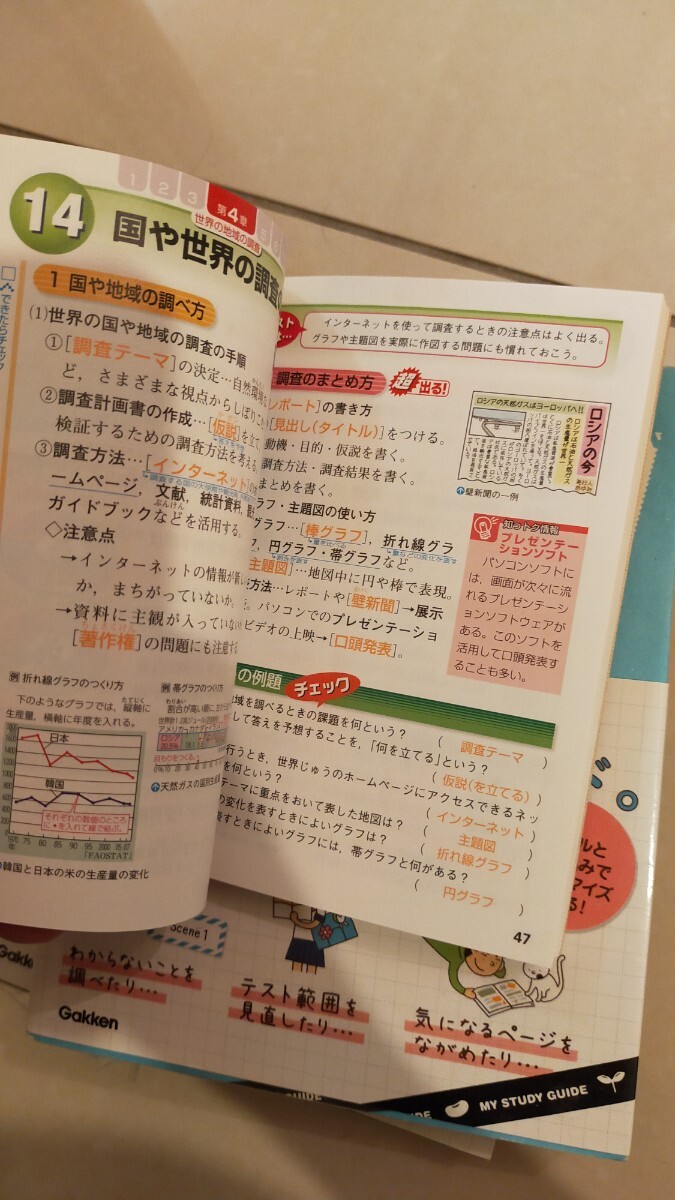 1
2
3
第4章
世界の地域の調査
14
国や世界の調査
できたらチェック
1 国や地域の調べ方
(1)世界の国や地域の調査の手順
①[調査テーマ]の決定…自然環境
ど，さまざまな視点からしぼりこ
②調査計画書の作成…[仮説]を立て
検証するための調査方法を考える
③調査方法…[インターネット]
ームページ，文献，統計資料，
ガイドブックなどを活用する。
◇注意点
→インターネットの情報が
か，まちがっていないか
→資料に主観が入っていない
[著作権]の問題にも注意する
例 折れ線グラフのつくり方
下のようなグラフでは，縦軸に
生産量，横軸に年度を入れる。
日本
韓国
それぞれの数値のところ
に●を入れて線で結ぶ。
「FAOSTAT」
韓国と日本の米の生産量の変化
例 帯グラフのつくり方
天然ガスの国別生産量
インターネットを使って調査するときの注意点はよく出る。
グラフや主題図を実際に作図する問題にも慣れておこう。
調査のまとめ方
超出る!
レポート]の書き方
[見出し(タイトル)]をつける。
動機・目的・仮説を書く。
調査方法・調査結果を書く。
まとめを書く。
ラフ・主題図の使い方
グラフ…[棒グラフ]，折れ線グラ
，円グラフ・帯グラフなど。
主題図]…地図中に円や棒で表現。
方法…レポートや[壁新聞]→展示
。パソコンでのプレゼンテーショ
ビデオの上映→[口頭発表]。
ロシアの今
ロシアの天然ガスはヨーロッパへ!!
壁新聞の一例
知っトク情報
プレゼンテー
ションソフト
パソコンソフトに
は，画面が次々に流
れるプレゼンテーシ
ョンソフトウェアが
ある。このソフトを
活用して口頭発表す
ることも多い。
の例題 チェック
域を調べるときの課題を何という?
(調査テーマ)
して答えを予想することを，「何を立てる」という?
(仮説(を立てる))
行うとき，世界じゅうのホームページにアクセスできるネッ
を何という?
(インターネット)
テーマに重点をおいて表した地図は?
(主題図)
の変化を表すときによいグラフは?
(折れ線グラフ)
表すときによいグラフには，帯グラフと何がある?
(円グラフ)
47
Scene 1
わからないことを
調べたり…
テスト範囲を
見直したり…
気になるページを
ながめたり…
Gakken
MY STUDY GUIDE